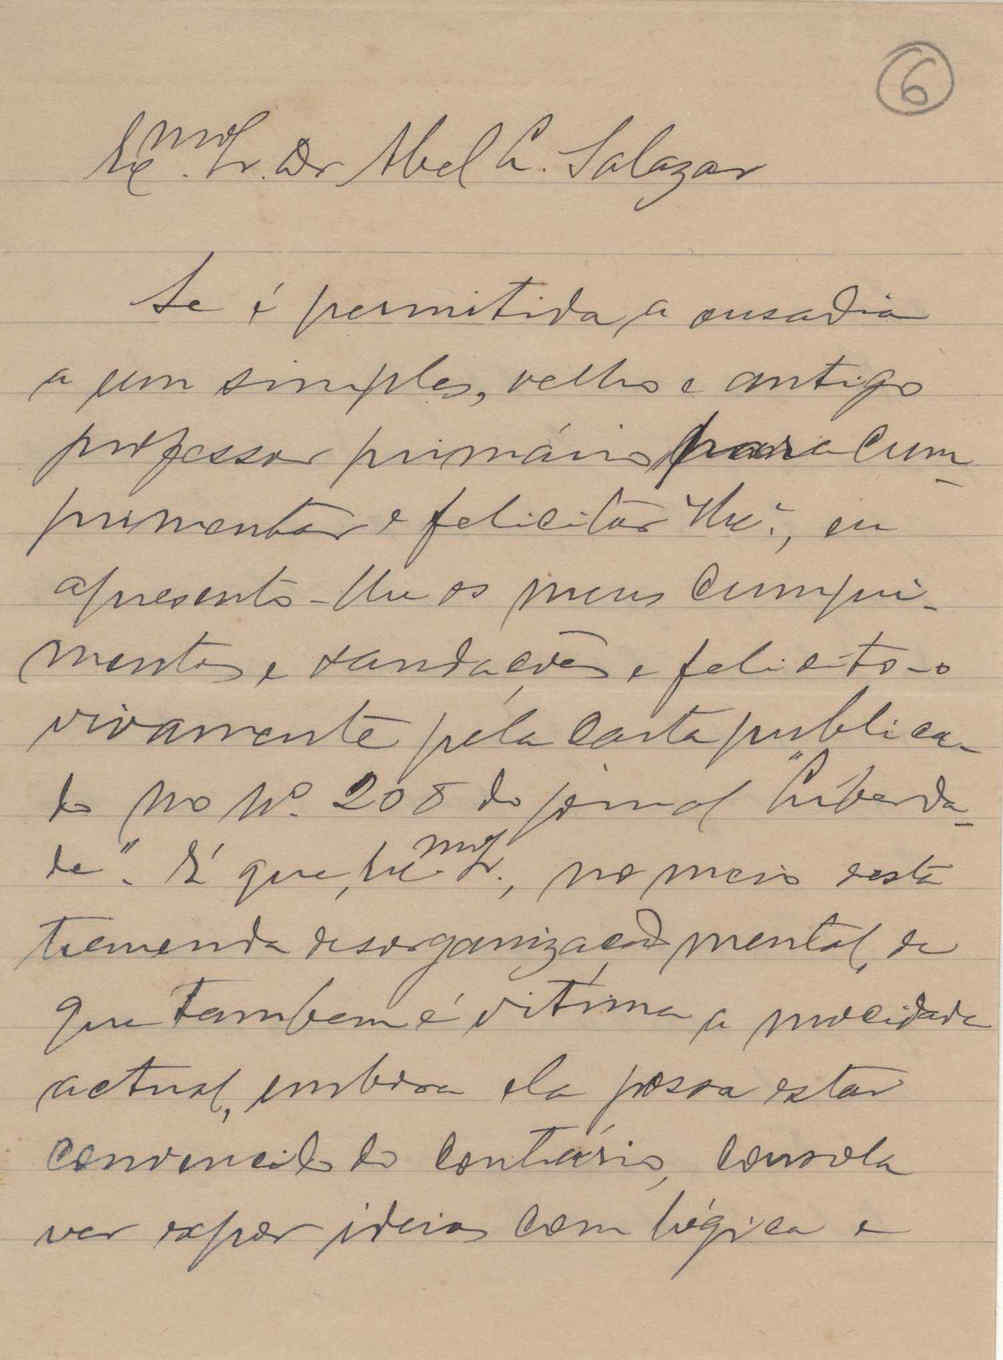 6
Exmo. Sr. Dr Abel L. Salazar
Se é permitida a ousadia
a um simples, velho e antigo
professor primário para cum-
primentar e felicitar V. Exa., eu
apresento-lhe os meus cumpri-
mentos e saudações e felicito-o
vivamente pela carta publica-
da no no. 208 do jornal "Liberda-
de". É que, Exmo. Sr., no meio desta
tremenda desorganização mental, de
que tambem é vítima a mocidade
actual, embora ela possa estar
convencida do contrário, consola
ver expor ideias com lógica e